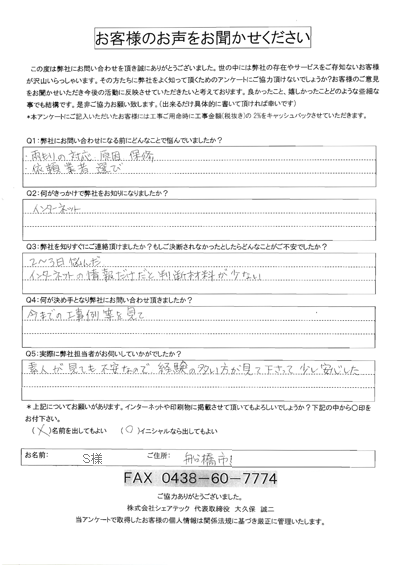 お客様のお声をお聞かせください
この度は弊社にお問い合わせを頂き誠にありがとうございました。世の中には弊社の存在やサービスをご存知ないお客様
が沢山いらっしゃいます。その方たちに弊社をよく知って頂くためのアンケートにご協力頂けないでしょうか?お客様のご意見
をお聞かせいただき今後の活動に反映させていただきたいと考えております。良かったこと、嬉しかったことどのような些細な
事でも結構です。是非ご協力お願い致します。(出来るだけ具体的に書いて頂ければ幸いです)
*本アンケートにご記入いただいたお客様には工事ご用命時に工事金額(税抜き)の2%をキャッシュバックさせていただきます。
Q1:弊社にお問い合わせになる前にどんなことで悩んでいましたか?
・雨もりの対応 原因 保修
・依頼業者選び
Q2:何がきっかけで弊社をお知りになりましたか?
インターネット
Q3:弊社を知りすぐにご連絡頂けましたか?もしご決断されなかったとしたらどんなことがご不安でしたか?
2〜3日悩んだ
インターネットの情報だけだと判断材料が少ない
Q4:何が決め手となり弊社にお問い合わせ頂きましたか?
今までの工事例等を見て
Q5:実際に弊社担当者がお伺いしていかがでしたか?
素人が見ても不安なので、経験の多い方が見て下さって少し安心した
*上記についてお願いがあります。インターネットや印刷物に掲載させて頂いてもよろしいでしょうか?下記の中から〇印を
お付下さい。
(×)名前を出してもよい (○)イニシャルなら出してもよい
お名前: S様 ご住所: 船橋市
FAX 0438-60-7774
ご協力ありがとうございました。
株式会社シェアテック 代表取締役 大久保 誠二
当アンケートで取得したお客様の個人情報は関係法規に基づき厳正に管理いたします。